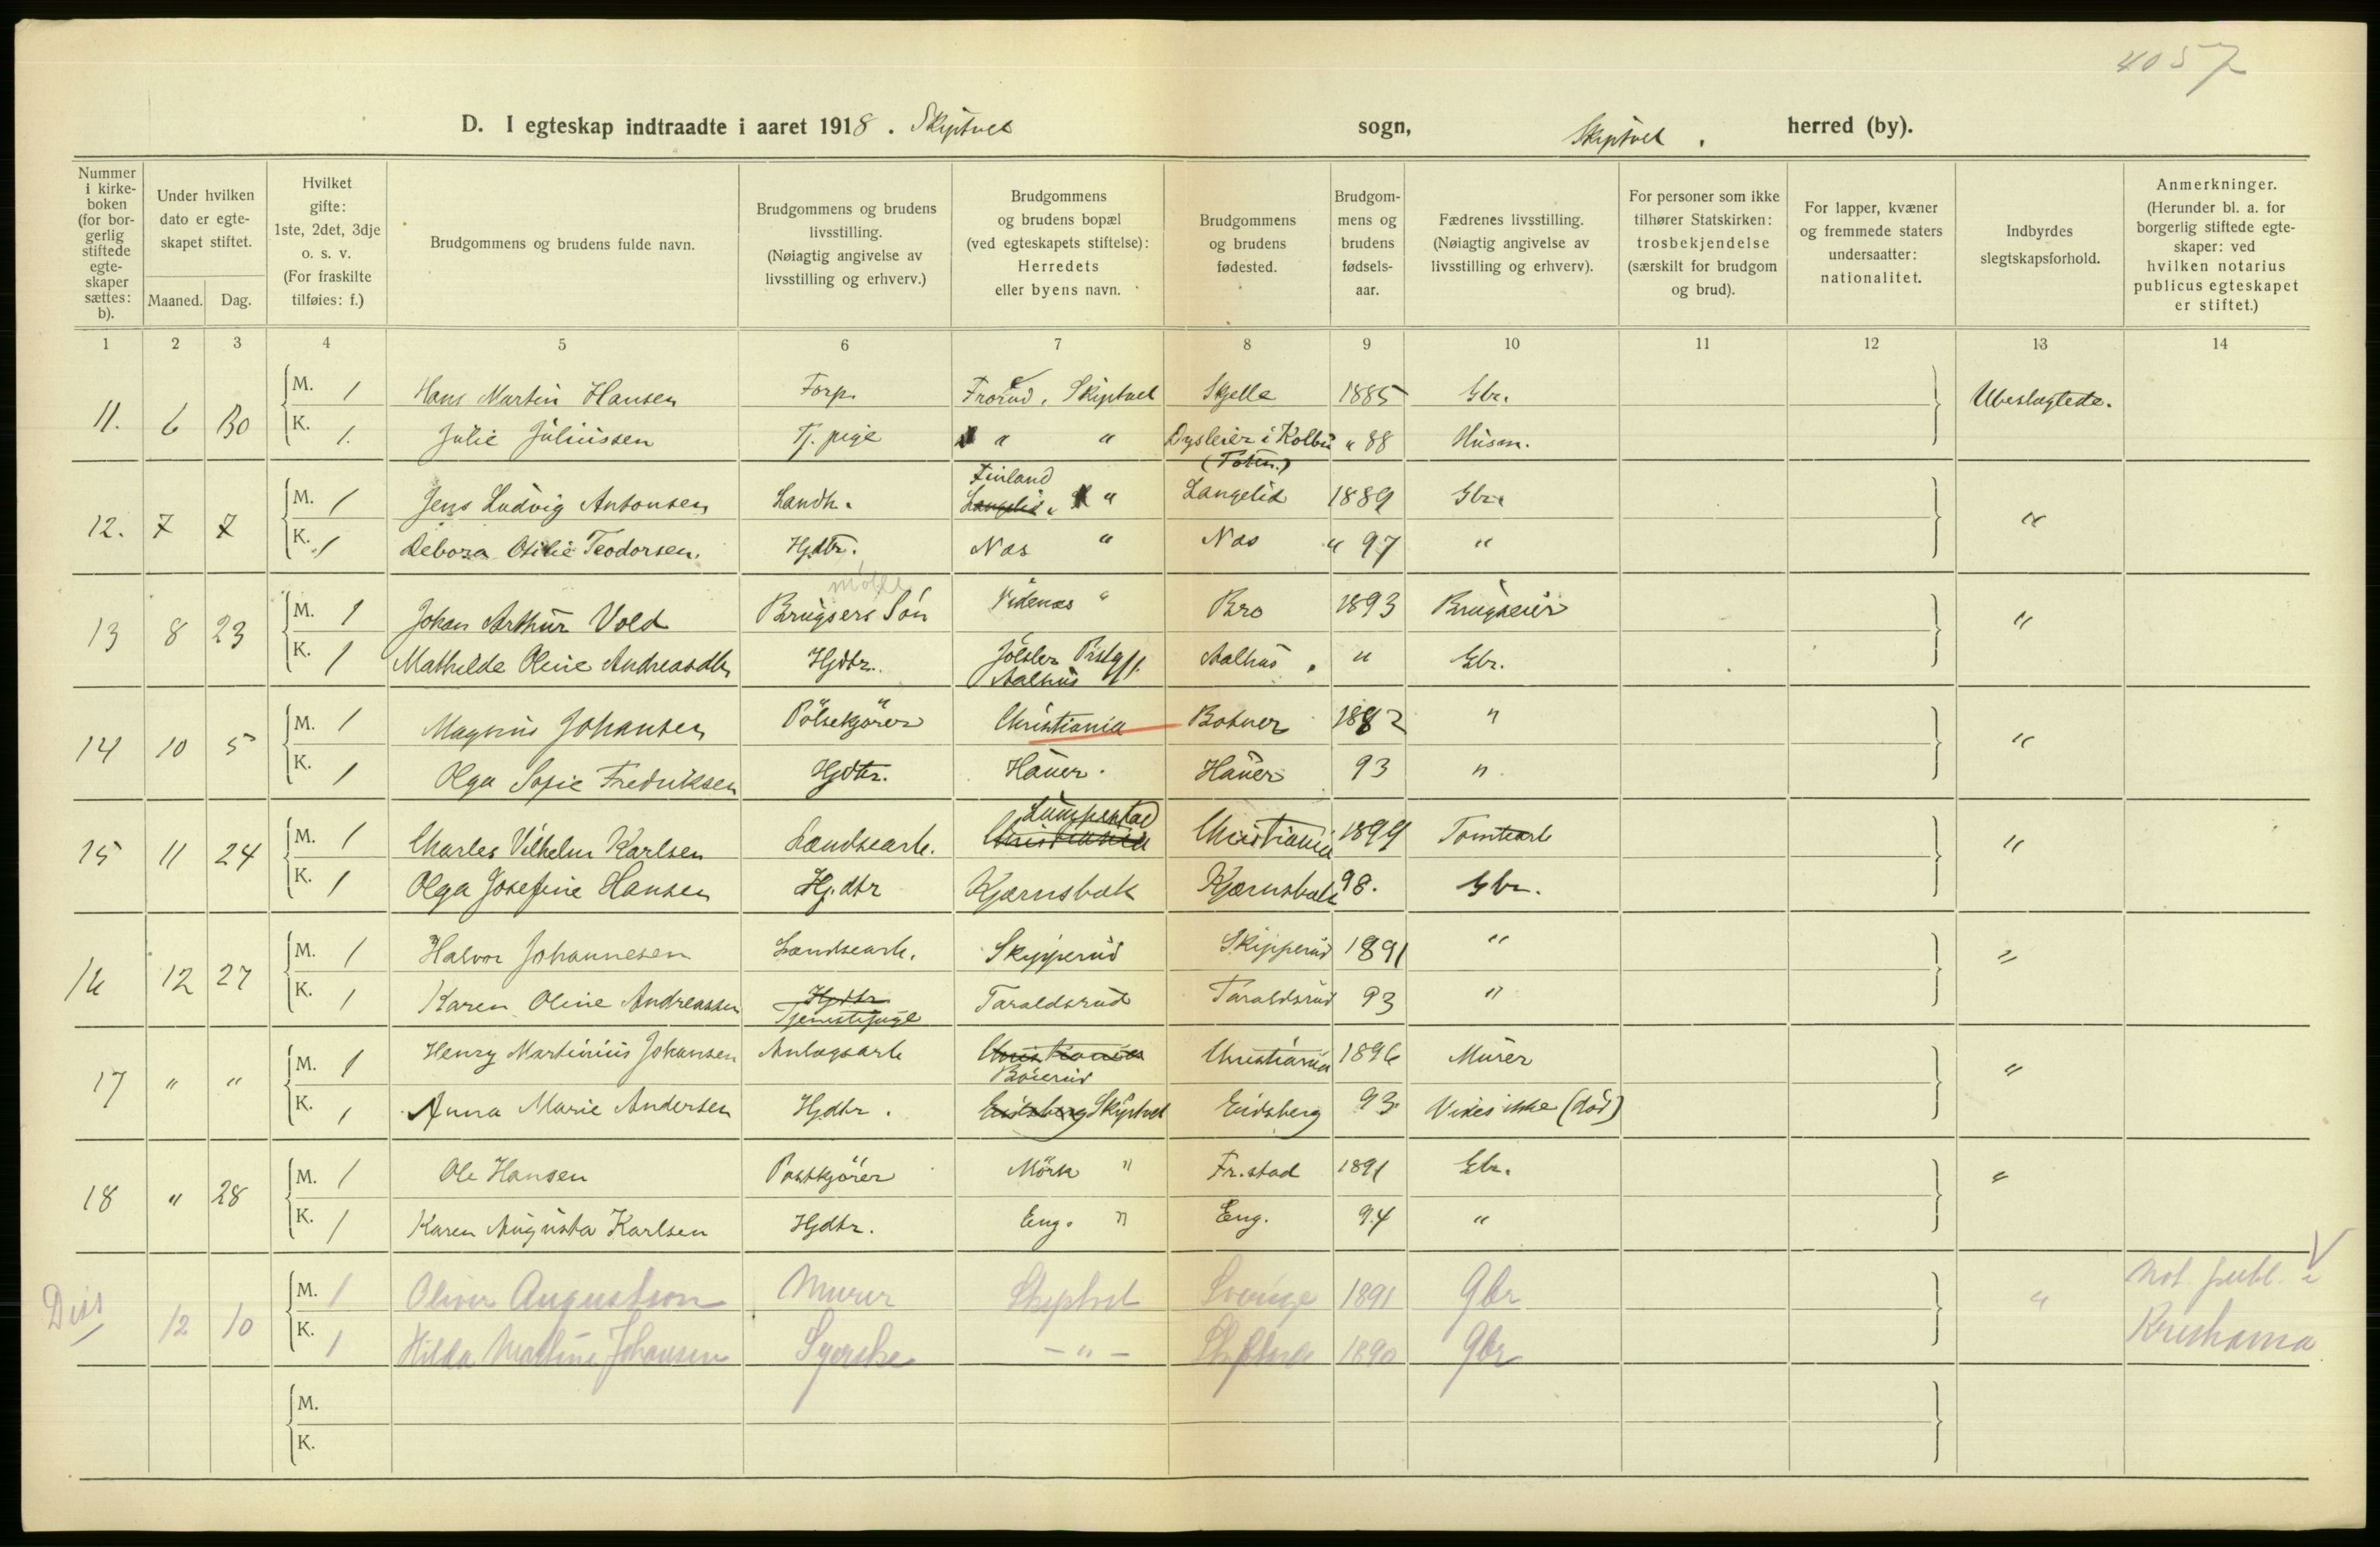 4057
D. I egteskap indtraadte i aaret 1918. Skiptvet sogn, Skiptvet. herred (by).
Nummer i kirkeboken (for borgerlig stiftede egteskaper sættes: b).
Under hvilken dato er egteskapet stiftet.
Maaned. Dag.
Hvilket gifte: 1ste, 2det, 3dje o. s. v. (For fraskilte tilføies: f.)
Brudgommens og brudens fulde navn.
Brudgommens og brudens livsstilling. (Nøiagtig angivelse av livsstilling og erhverv.)
Brudgommens og brudens bopæl (ved egteskapets stiftelse): Herredets eller byens navn.
Brudgommens og brudens fødested.
Brudgommens og brudens fødselsaar.
Fædrenes livsstilling. (Nøiagtig angivelse av livsstilling og erhverv).
For personer som ikke tilhører Statskirken: trosbekjendelse (særskilt for brudgom og brud).
For lapper, kvæner og fremmede staters undersaatter: nationalitet.
Indbyrdes slegtskapsforhold.
Anmerkninger. (Herunder bl. a. for borgerlig stiftede egteskaper: ved hvilken notarius publicus egteskapet er stiftet.)
1 2 3 4 5 6 7 8 9 10 11 12 13 14
11. 6 30 M. 1 Hans Martin Hansen Forp. Frorud, Skiptvet Skjelle 1885 Gbr. Ubeslegtede.
K. 1. Julie Juliussen Tj. pige " " Dysleier i Kolbu (Toten.) " 88 Husm.
12. 7 7 M. 1 Jens Ludvig Antonsen Landh. Finland Langelid " Langelid 1889 Gbr. "
K. 1 Debora Otilie Teodorsen. Hjdtr. Næs " Næs " 97 "
13 8 23 M. 1 Johan Arthur Vold Brugsers Søn Videnæs " Bro 1893 Brugseier "
K. 1 Mathilde Oline Andreasdtr Hjdtr. Jölster Prstgj. Aalhus Aalhus " Gbr.
14 10 5 M. 1 Magnus Johansen Pölsekjörer Christiania Botner 1882 " "
K. 1 Olga Sofie Fredriksen Hjdtr. Hauer. Hauer 93 "
15 11 24 M. 1 Charles Vilhelm Karlsen Landsearb. Christiania Christiania 1899 Tomtearb "
K. 1 Olga Josefine Hansen Hj.dtr Kjærnsbæk Kjærnsbæk 98. Gbr.
16 12 27 M. 1 Halvor Johannesen Landsearb. Skipperud Skipperud 1891 " "
K. 1 Karen Oline Andreassen Hjdtr Tjenestepige Taraldsrud Taraldsrud 93 "
17 " " M. 1 Henry Martinius Johansen Anlægsarb Christiania Böierud Christiania 1896 Murer "
K. 1 Anna Marie Andersen Hjdtr. Eidsberg Skiptvet Eidsberg 93 Vides ikke (död)
18 " 28 M. 1 Ole Hansen Postkjörer Mörk " Fr.stad 1891 Gbr. "
K. 1 Karen Augusta Karlsen Hjdtr. Eng. " Eng. 94 "
Diss 12 10 M. 1 Oliver Augustson Murer Skiptvet Sverige 1891 Gbr " Not. publ. i
K. 1 Hilda Mathine Johansen Syerske - " - Skiptvet 1890 Gbr Kristiania
M.
K.